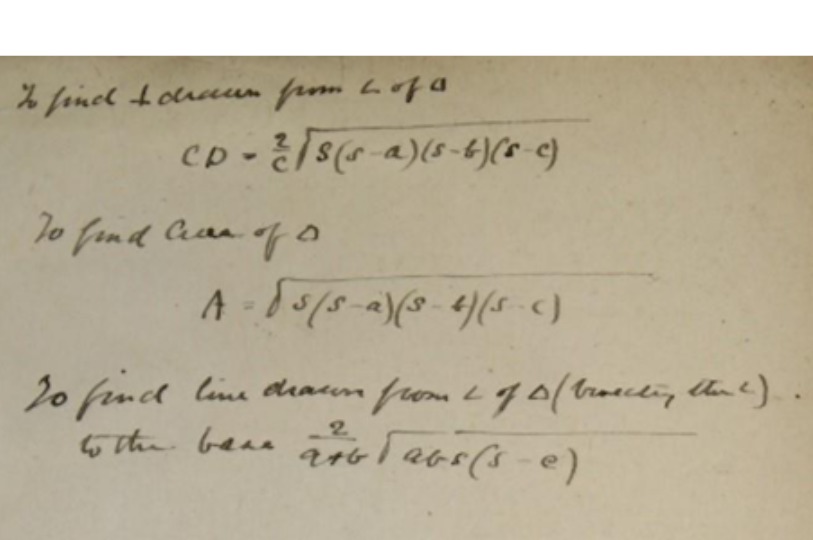 To find ⊥ drawn from ∠ of Δ
CD = 2/c √s(s-a)(s-b)(s-c)
To find Area of Δ
A = √s(s-a)(s-b)(s-c)
To find line drawn from ∠ of Δ (bisecting the ∠).
to the base 2/a+b √abs(s-c)